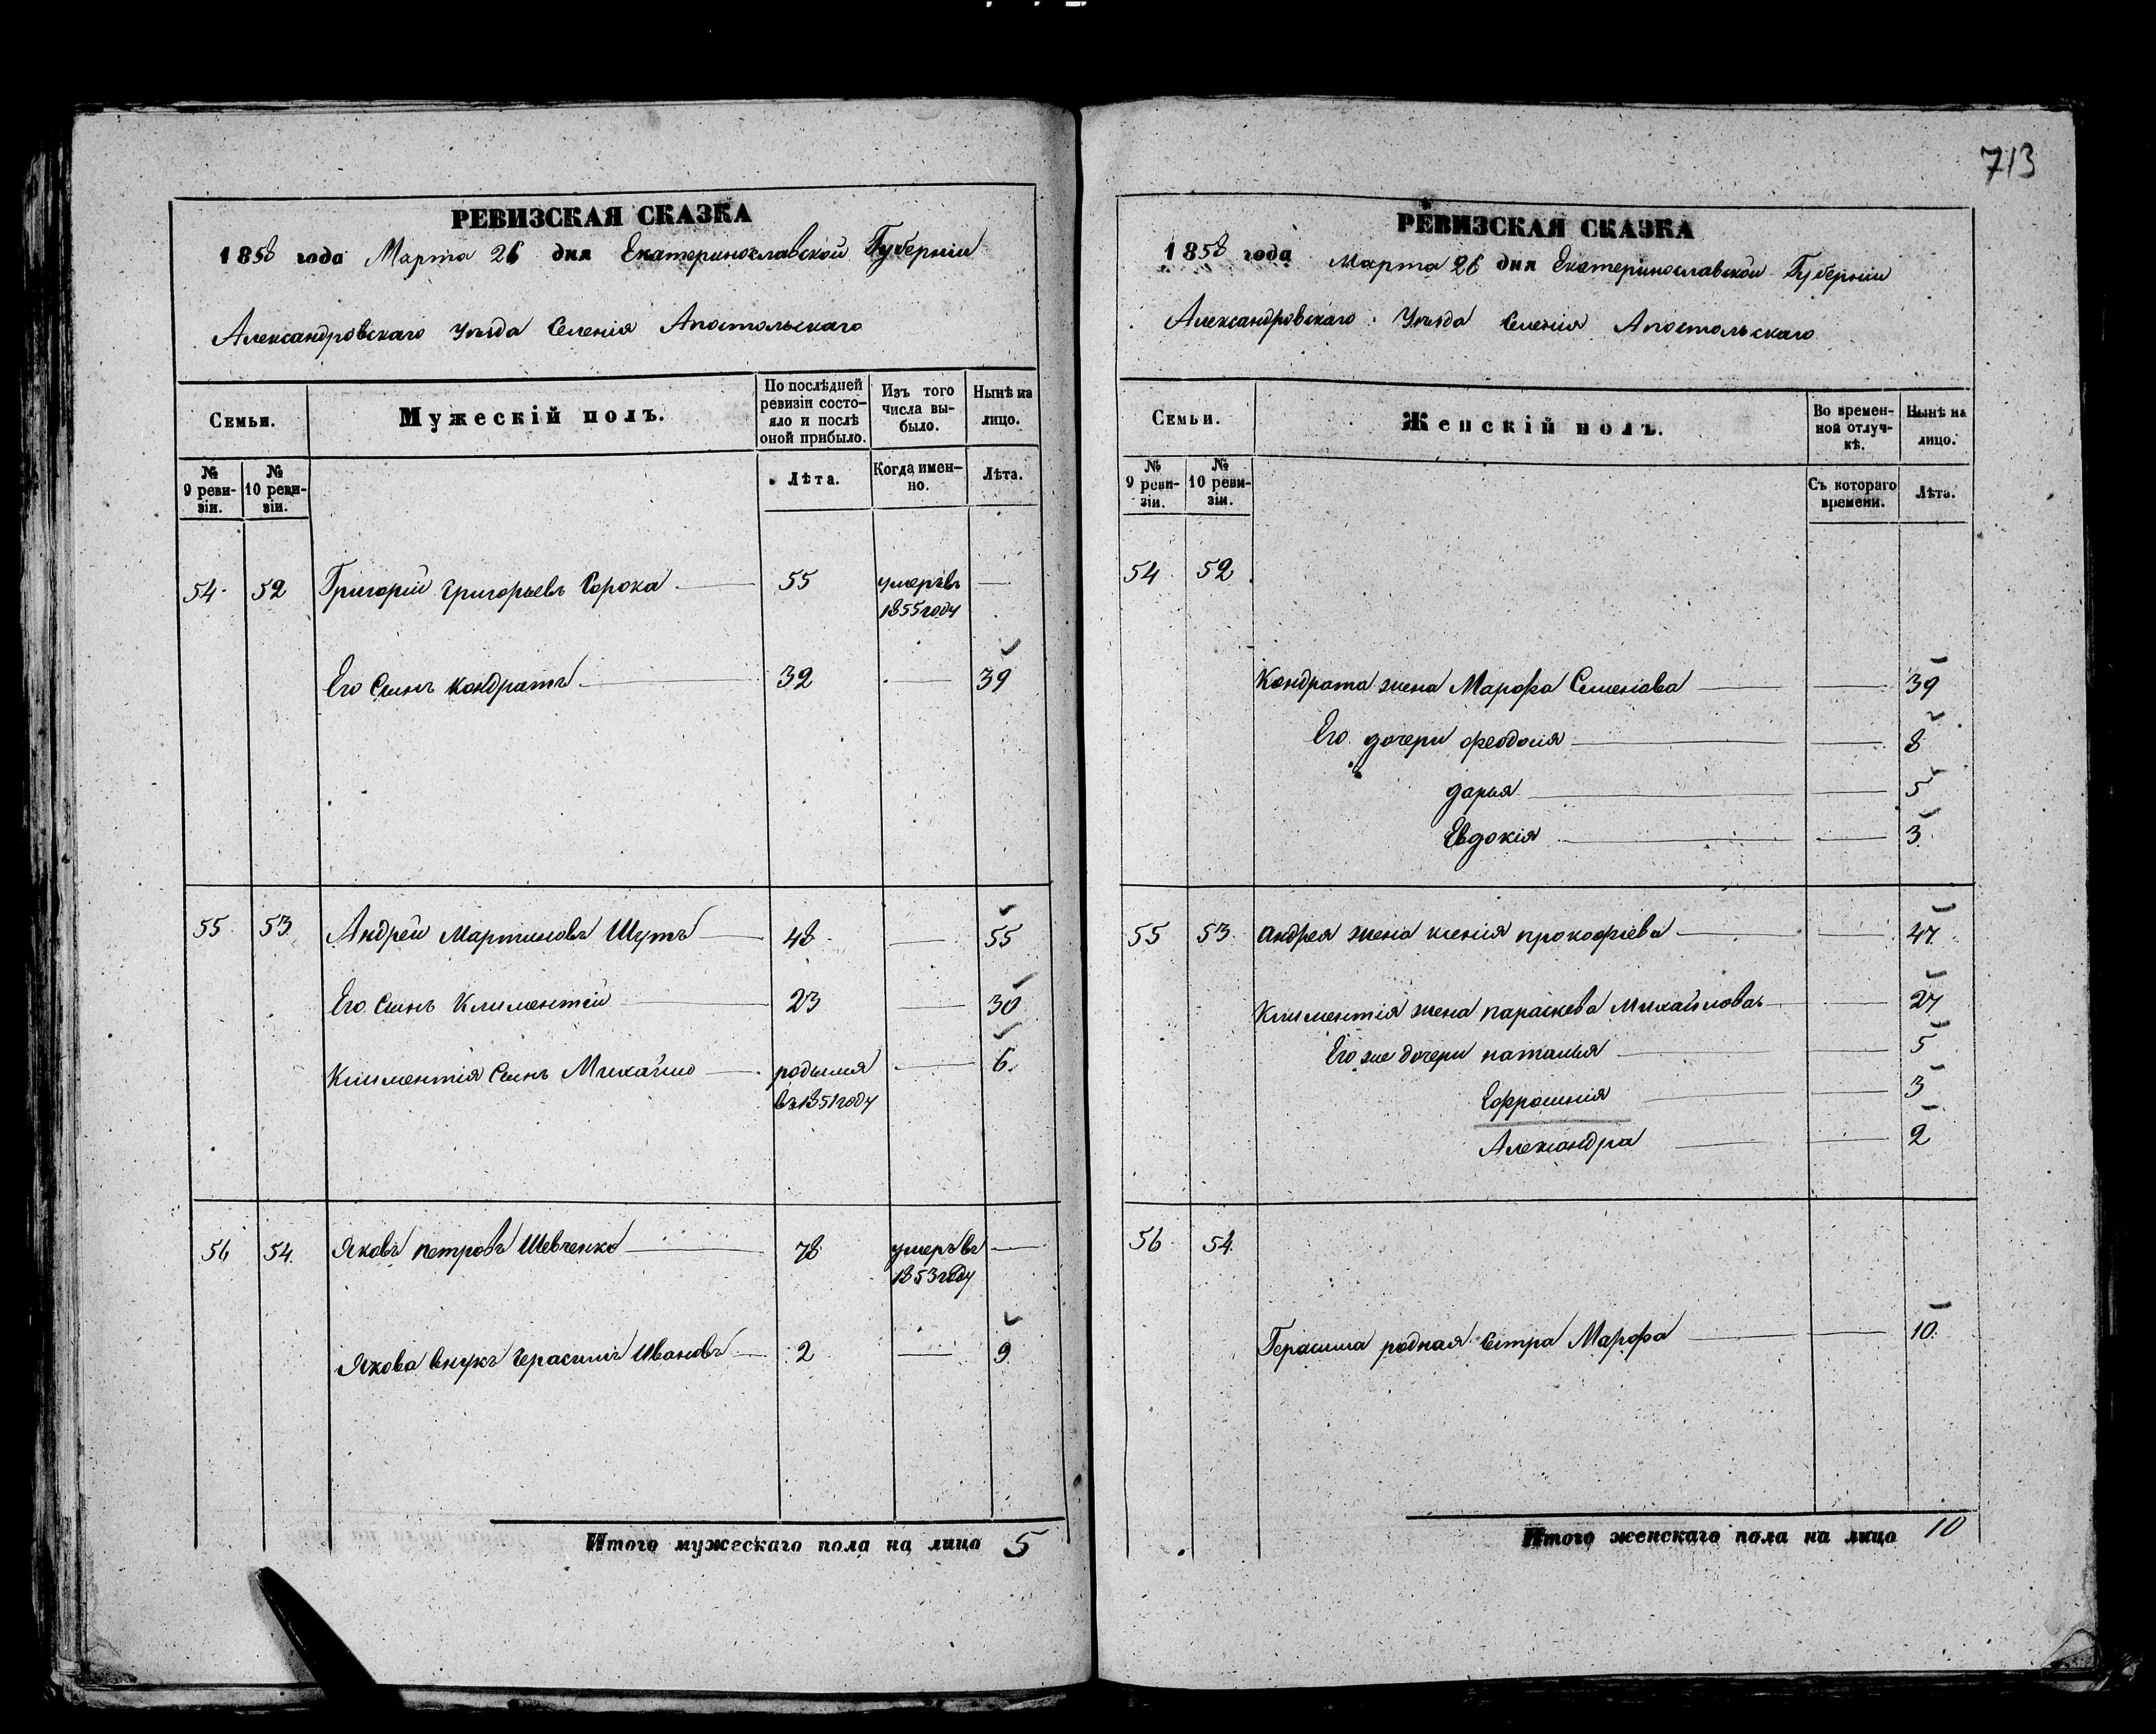 713
РЕВИЗСКАЯ СКАЗКА
1858 года Марта 26 дня Екатеринославской Губерніи
Александровскаго Уѣзда Селенія Апостольскаго
Семьи.
Мужескій полъ.
По послѣдней ревизіи состояло и послѣ оной прибыло.
Изъ того числа выбыло.
Нынѣ на лицо.
№ 9 ревизіи.
№ 10 ревизіи.
Лѣта.
Когда именно.
Лѣта.
54 52 Григорій Григорьевъ Сорока 55 умеръ въ —
1855 году
Его Сынъ Кондратъ 32 — 39
55 53 Андрей Мартиновъ Шутъ 48 — 55
Его Сынъ Климентій 23 — 30
Климентія Сынъ Михайло родился — 6
въ 1851 году
56 54 Яковъ Петровъ Шевченко 78 умеръ въ —
1853 году
Якова внукъ Герасимъ Ивановъ 2 — 9
Итого мужескаго пола на лицо 5
РЕВИЗСКАЯ СКАЗКА
1858 года Марта 26 дня Екатеринославской Губерніи
Александровскаго Уѣзда Селенія Апостольскаго
Семьи.
Женскій полъ.
Во временной отлучкѣ.
Нынѣ на лицо.
№ 9 ревизіи.
№ 10 ревизіи.
Съ котораго времени.
Лѣта.
54 52
Кондрата жена Марфа Семенова — 39
Его дочери Феодосія — 8
Дарья — 5
Евдокія — 3
55 53 Андрея жена Ксенія Прокофіева — 47
Климентія жена Параскева Михайлова — 27
Его же дочери Наталья — 5
Ефросинія — 3
Александра — 2
56 54
Герасима родная сестра Марфа — 10
Итого женскаго пола на лицо 10